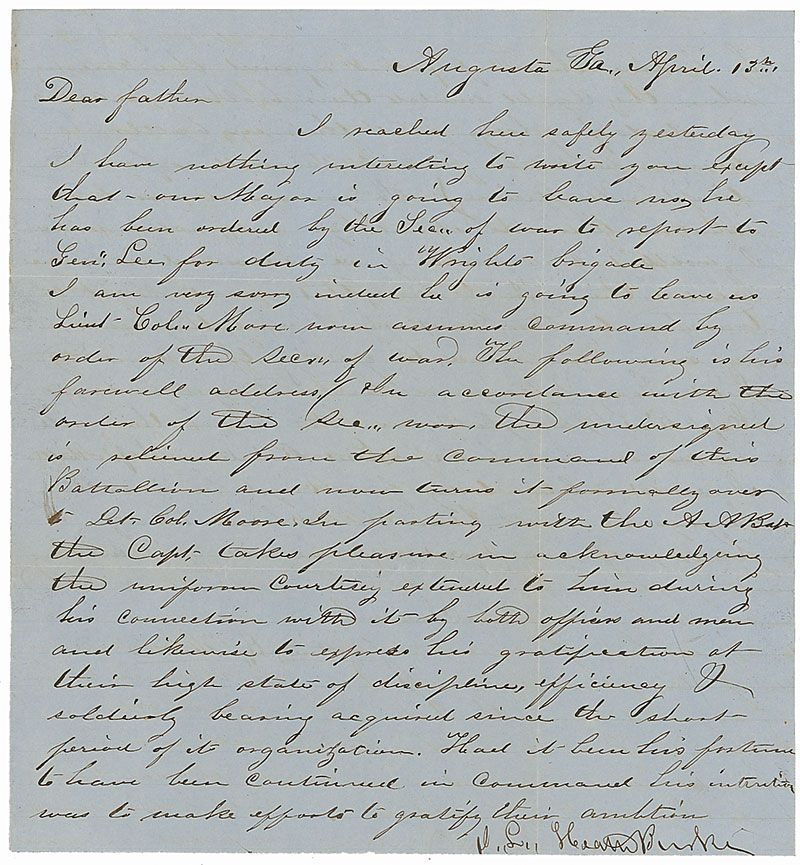 Augusta Ga., April. 13th,
Dear father
I reached here safely yesterday
I have nothing interesting to write you except
that our Major is going to leave us, he
has been ordered by the Sec. of war to report to
Genl. Lee for duty in Wrights brigade
I am very sorry indeed he is going to leave us
Lieut Col. More now assumes command by
order of the Secr. of war. The following is his
farewell address, In accordance with the
order of the Sec., war, the undersigned
is relieved from the command of this
Battallion and now turns it formally over
t Lt. Col. Moore. In parting with the A. A Bat
the Capt. takes pleasure in acknowledgeing
the uniform courtesiy extended to him during
his connection with it by both officers and men
and likewise to express his gratification at
their high state of discipline, efficiency &
soldierly bearing acquired since the short
period of it organization. Had it been his fortune
to have been continued in command his intention
was to make efforts to gratify their ambtion